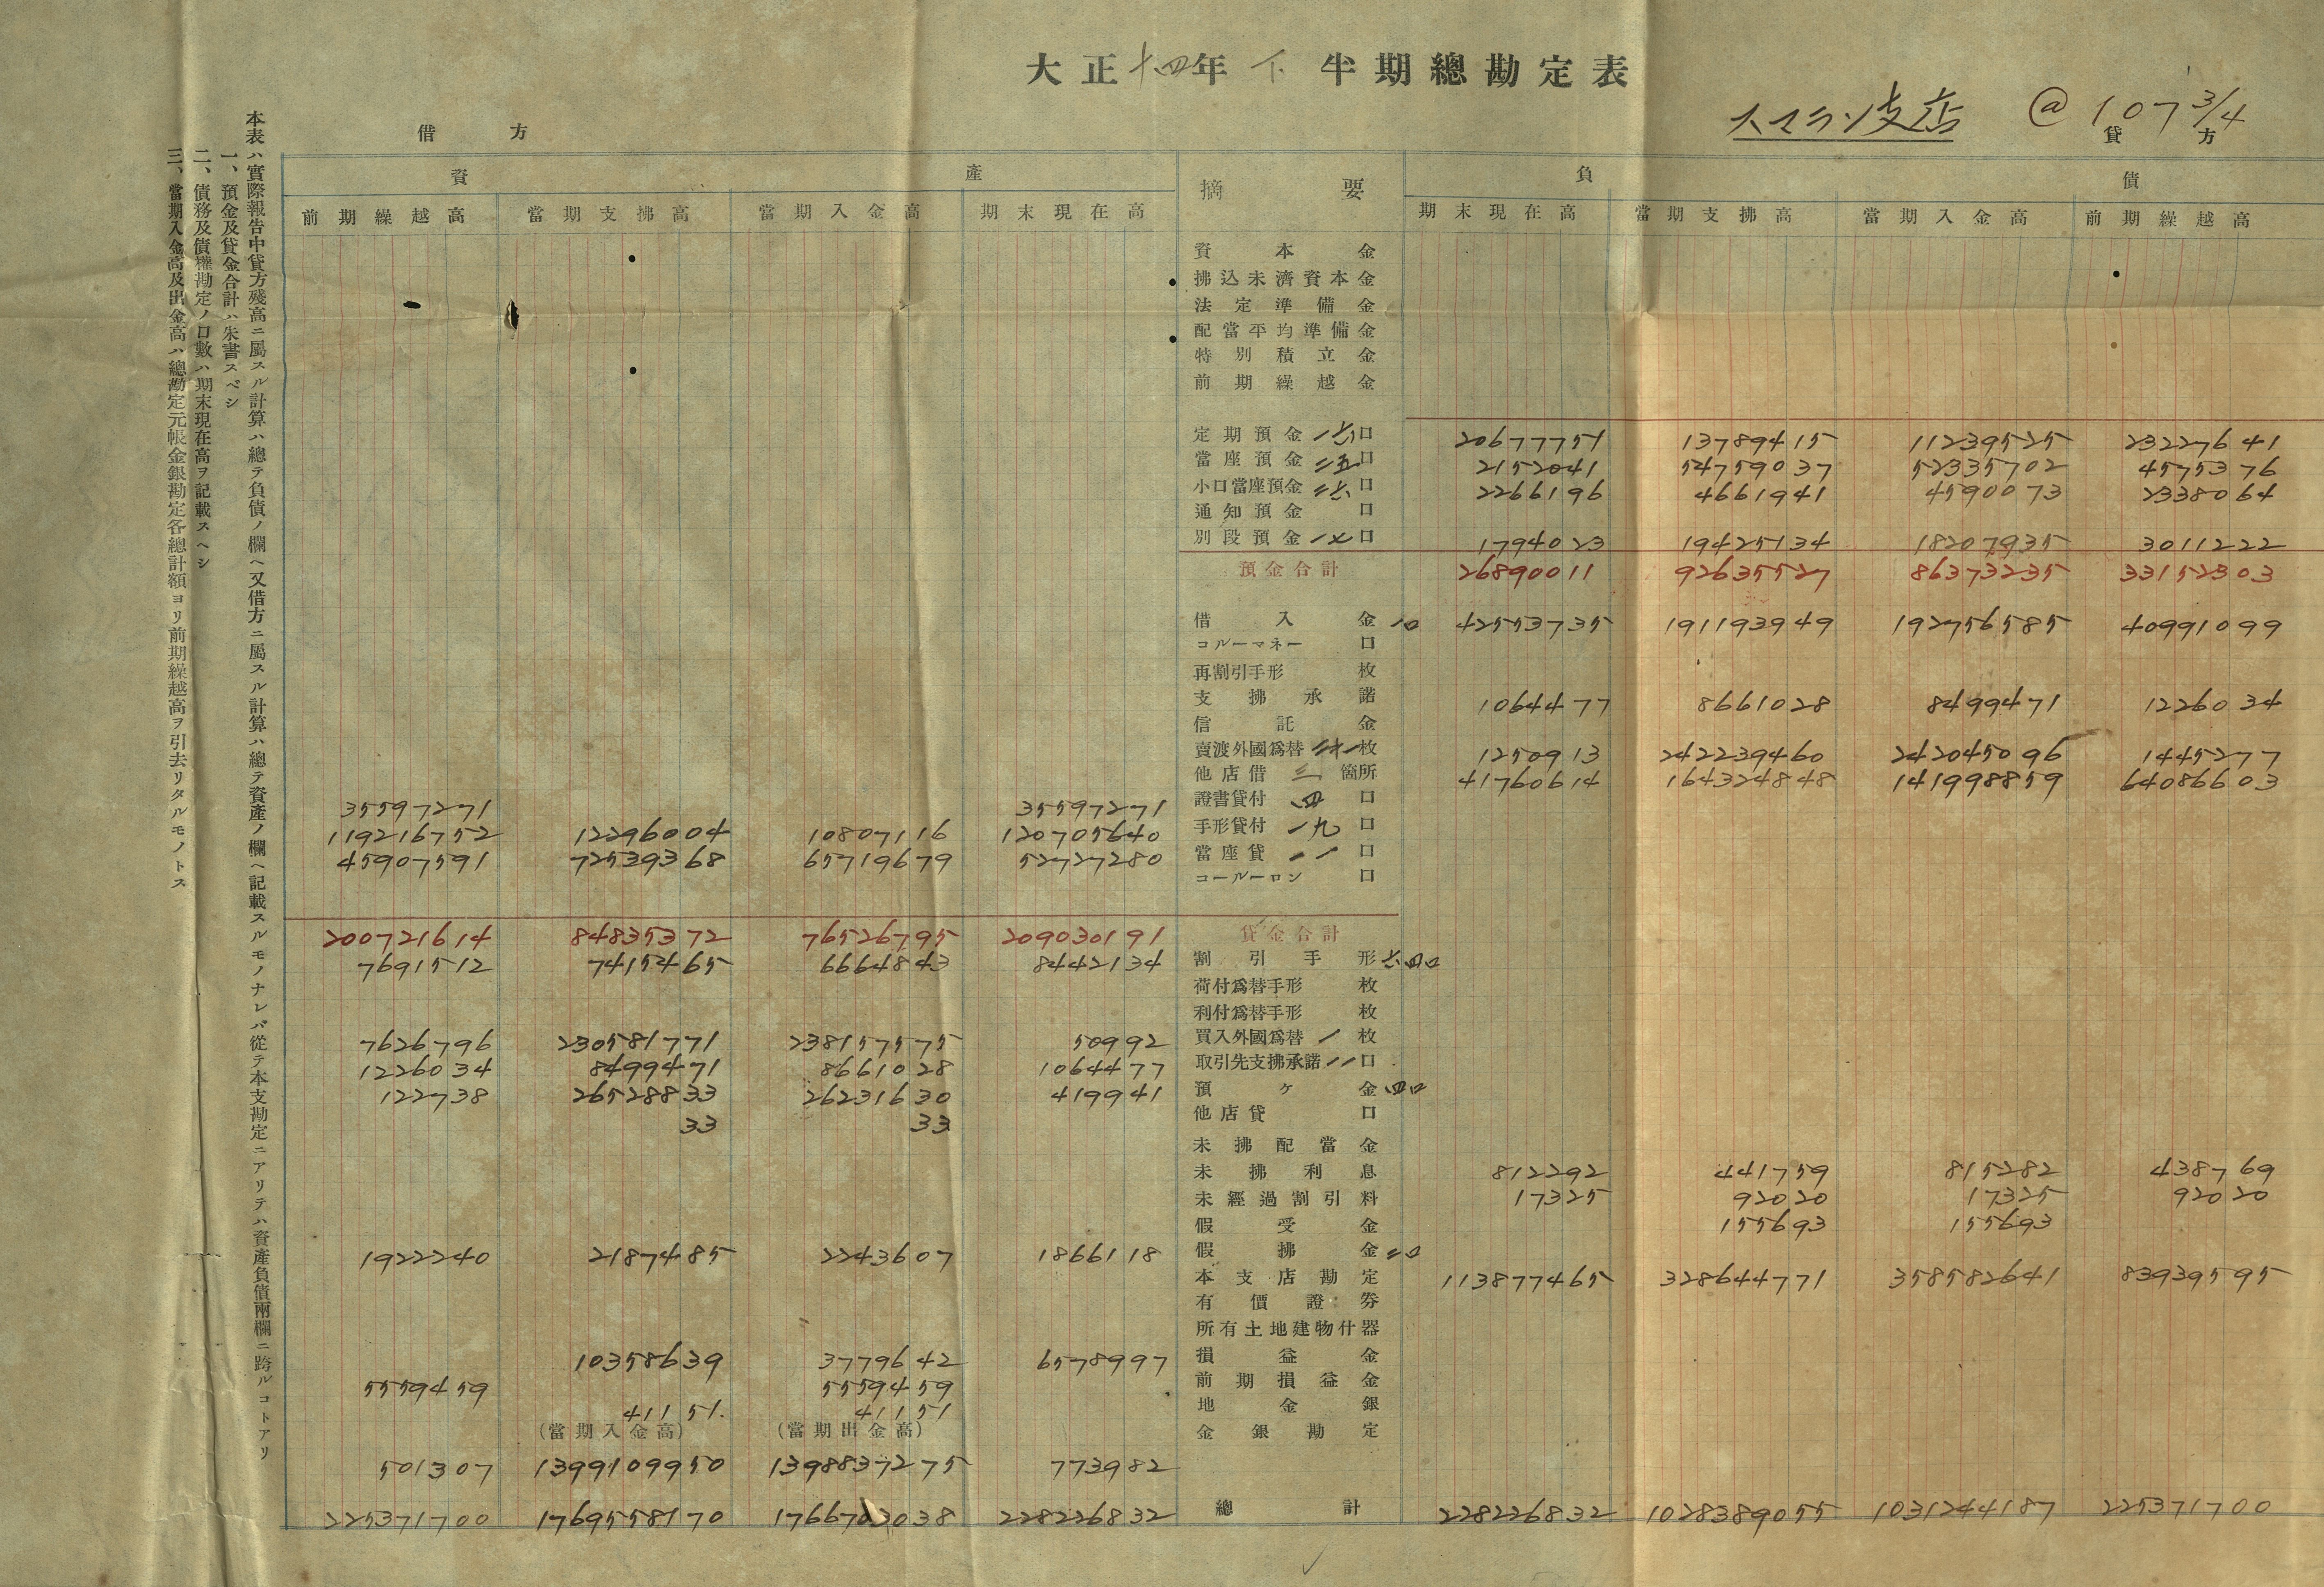 大正十四年下半期總勘定表
スマラン支店 @ 107 3/4
借方 貸方
資產 摘要 負債
前期繰越高 當期支拂高 當期入金高 期末現在高 期末現在高 當期支拂高 當期入金高 前期繰越高
資本金
拂込未濟資本金
法定準備金
配當平均準備金
特別積立金
前期繰越金
定期預金 一六口 20677751 13789415 11239525 23227641
當座預金 二五口 2152041 54759037 52335702 4575376
小口當座預金 二六口 2266196 4661941 4590073 2338064
通知預金 口
別段預金 一七口 1794023 19425134 18207935 3011222
預金合計 26890011 92635527 86373235 33152303
借入金 一口 42553735 191193949 192756585 40991099
コルーマネー 口
再割引手形 枚
支拂承諾 1064477 8661028 8499471 1226034
信託金
賣渡外國爲替 二十一枚 1250913 242239460 242045096 1445277
他店借 三 箇所 41760614 164324848 141998859 64086603
35597271 35597271 證書貸付 四 口
119216752 12296004 10807116 120705640 手形貸付 一九 口
45907591 72539368 65719679 52727280 當座貸 一一 口
コールーロン 口
200721614 84835372 76526795 209030191 貸金合計
7691512 7415465 6664843 8442134 割引手形 六四口
荷付爲替手形 枚
利付爲替手形 枚
7626796 230581771 238157575 50992 買入外國爲替 一 枚
1226034 8499471 8661028 1064477 取引先支拂承諾 一一口
122738 26528833 26231630 419941 預ケ金 四口
33 33 他店貸 口
未拂配當金
未拂利息 812292 441759 815282 438769
未經過割引料 17325 92020 17325 92020
假受金 155693 155693
1922240 2187485 2243607 1866118 假拂金 二口
本支店勘定 113877465 328644771 358582641 83939595
有價證券
所有土地建物什器
10358639 3779642 6578997 損益金
5559459 5559459 前期損益金
41151 41151 地金銀
(當期入金高) (當期出金高) 金銀勘定
501307 1399109950 1398837275 773982
225371700 1769558170 1766703038 228226832 總計 228226832 1028389055 1031244187 225371700
本表ハ實際報告中貸方殘高ニ屬スル計算ハ總テ負債ノ欄ヘ又借方ニ屬スル計算ハ總テ資產ノ欄ヘ記載スルモノナレバ從テ本支勘定ニアリテハ資產負債兩欄ニ跨ルコトアリ
一、預金及貸金合計ハ朱書スベシ
二、債務及債權勘定ノ口數ハ期末現在高ヲ記載スヘシ
三、當期入金高及出金高ハ總勘定元帳金銀勘定各總計額ヨリ前期繰越高ヲ引去リタルモノトス